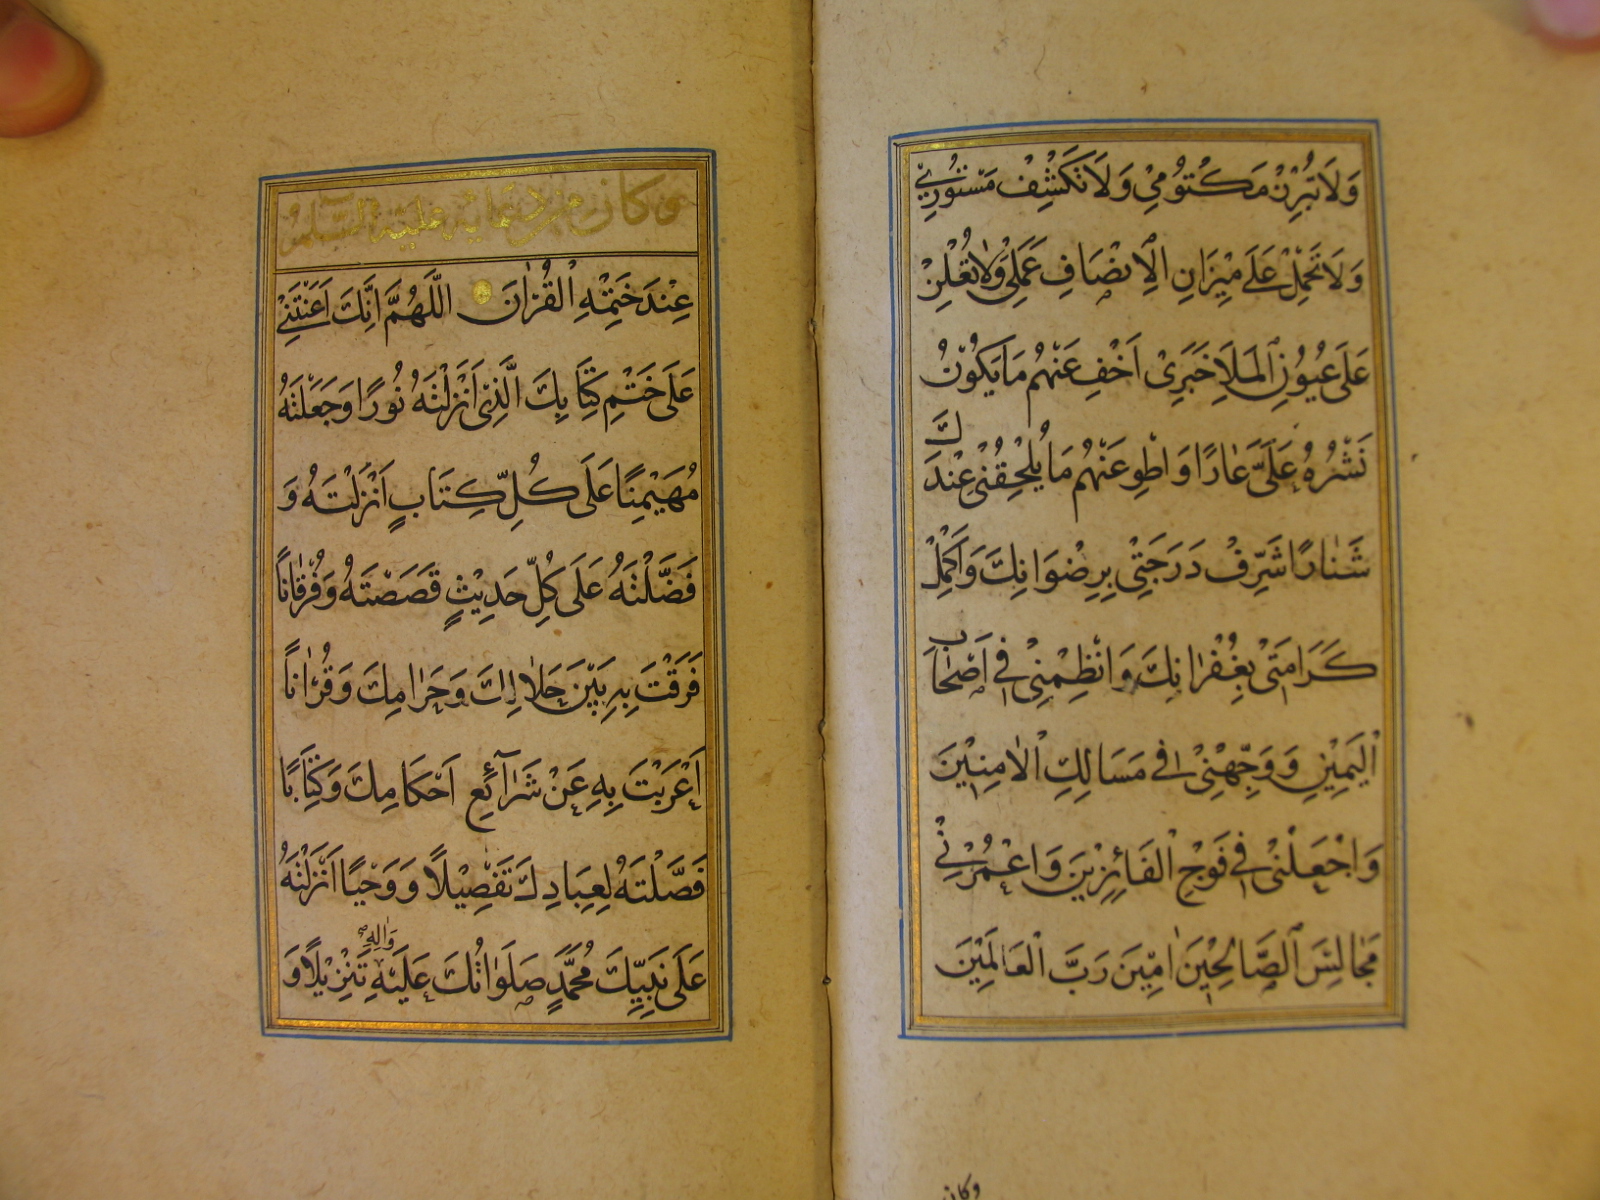 وَلَا تُبْرِزْ مَكْتُومِي وَلَا تَكْشِفْ مَسْتُورِي
وَلَا تَحْمِلْ عَلَى مِيزَانِ الْاِنْصَافِ عَمَلِي وَلَا تُعْلِنْ
عَلَى عُيُونِ الْمَلَاِ خَبَرِي اَخْفِ عَنْهُمْ مَا يَكُونُ
نَشْرُهُ عَلَيَّ عَارًا وَاطْوِ عَنْهُمْ مَا يُلْحِقُنِي عِنْدَكَ
شَنَارًا شَرِّفْ دَرَجَتِي بِرِضْوَانِكَ وَاَكْمِلْ
كَرَامَتِي بِغُفْرَانِكَ وَانْظِمْنِي فِي اَصْحَابِ
الْيَمِينِ وَوَجِّهْنِي فِي مَسَالِكِ الْاٰمِنِينَ
وَاجْعَلْنِي فِي فَوْجِ الْفَائِزِينَ وَاعْمُرْ بِي
مَجَالِسَ الصَّالِحِينَ اٰمِينَ رَبَّ الْعَالَمِينَ
وكان
وكان من دعائه عليه السلام
عِنْدَ خَتْمِهِ الْقُرْاٰنَ اَللّٰهُمَّ اِنَّكَ اَعَنْتَنِي
عَلَى خَتْمِ كِتَابِكَ الَّذِي اَنْزَلْتَهُ نُورًا وَجَعَلْتَهُ
مُهَيْمِنًا عَلَى كُلِّ كِتَابٍ اَنْزَلْتَهُ وَ
فَضَّلْتَهُ عَلَى كُلِّ حَدِيثٍ قَصَصْتَهُ وَفُرْقَانًا
فَرَقْتَ بِهِ بَيْنَ حَلَالِكَ وَحَرَامِكَ وَقُرْاٰنًا
اَعْرَبْتَ بِهِ عَنْ شَرَآئِعِ اَحْكَامِكَ وَكِتَابًا
فَصَّلْتَهُ لِعِبَادِكَ تَفْصِيلًا وَوَحْيًا اَنْزَلْتَهُ
عَلَى نَبِيِّكَ مُحَمَّدٍ صَلَوَاتُكَ عَلَيْهِ وَاٰلِهِ تَنْزِيلًا وَ